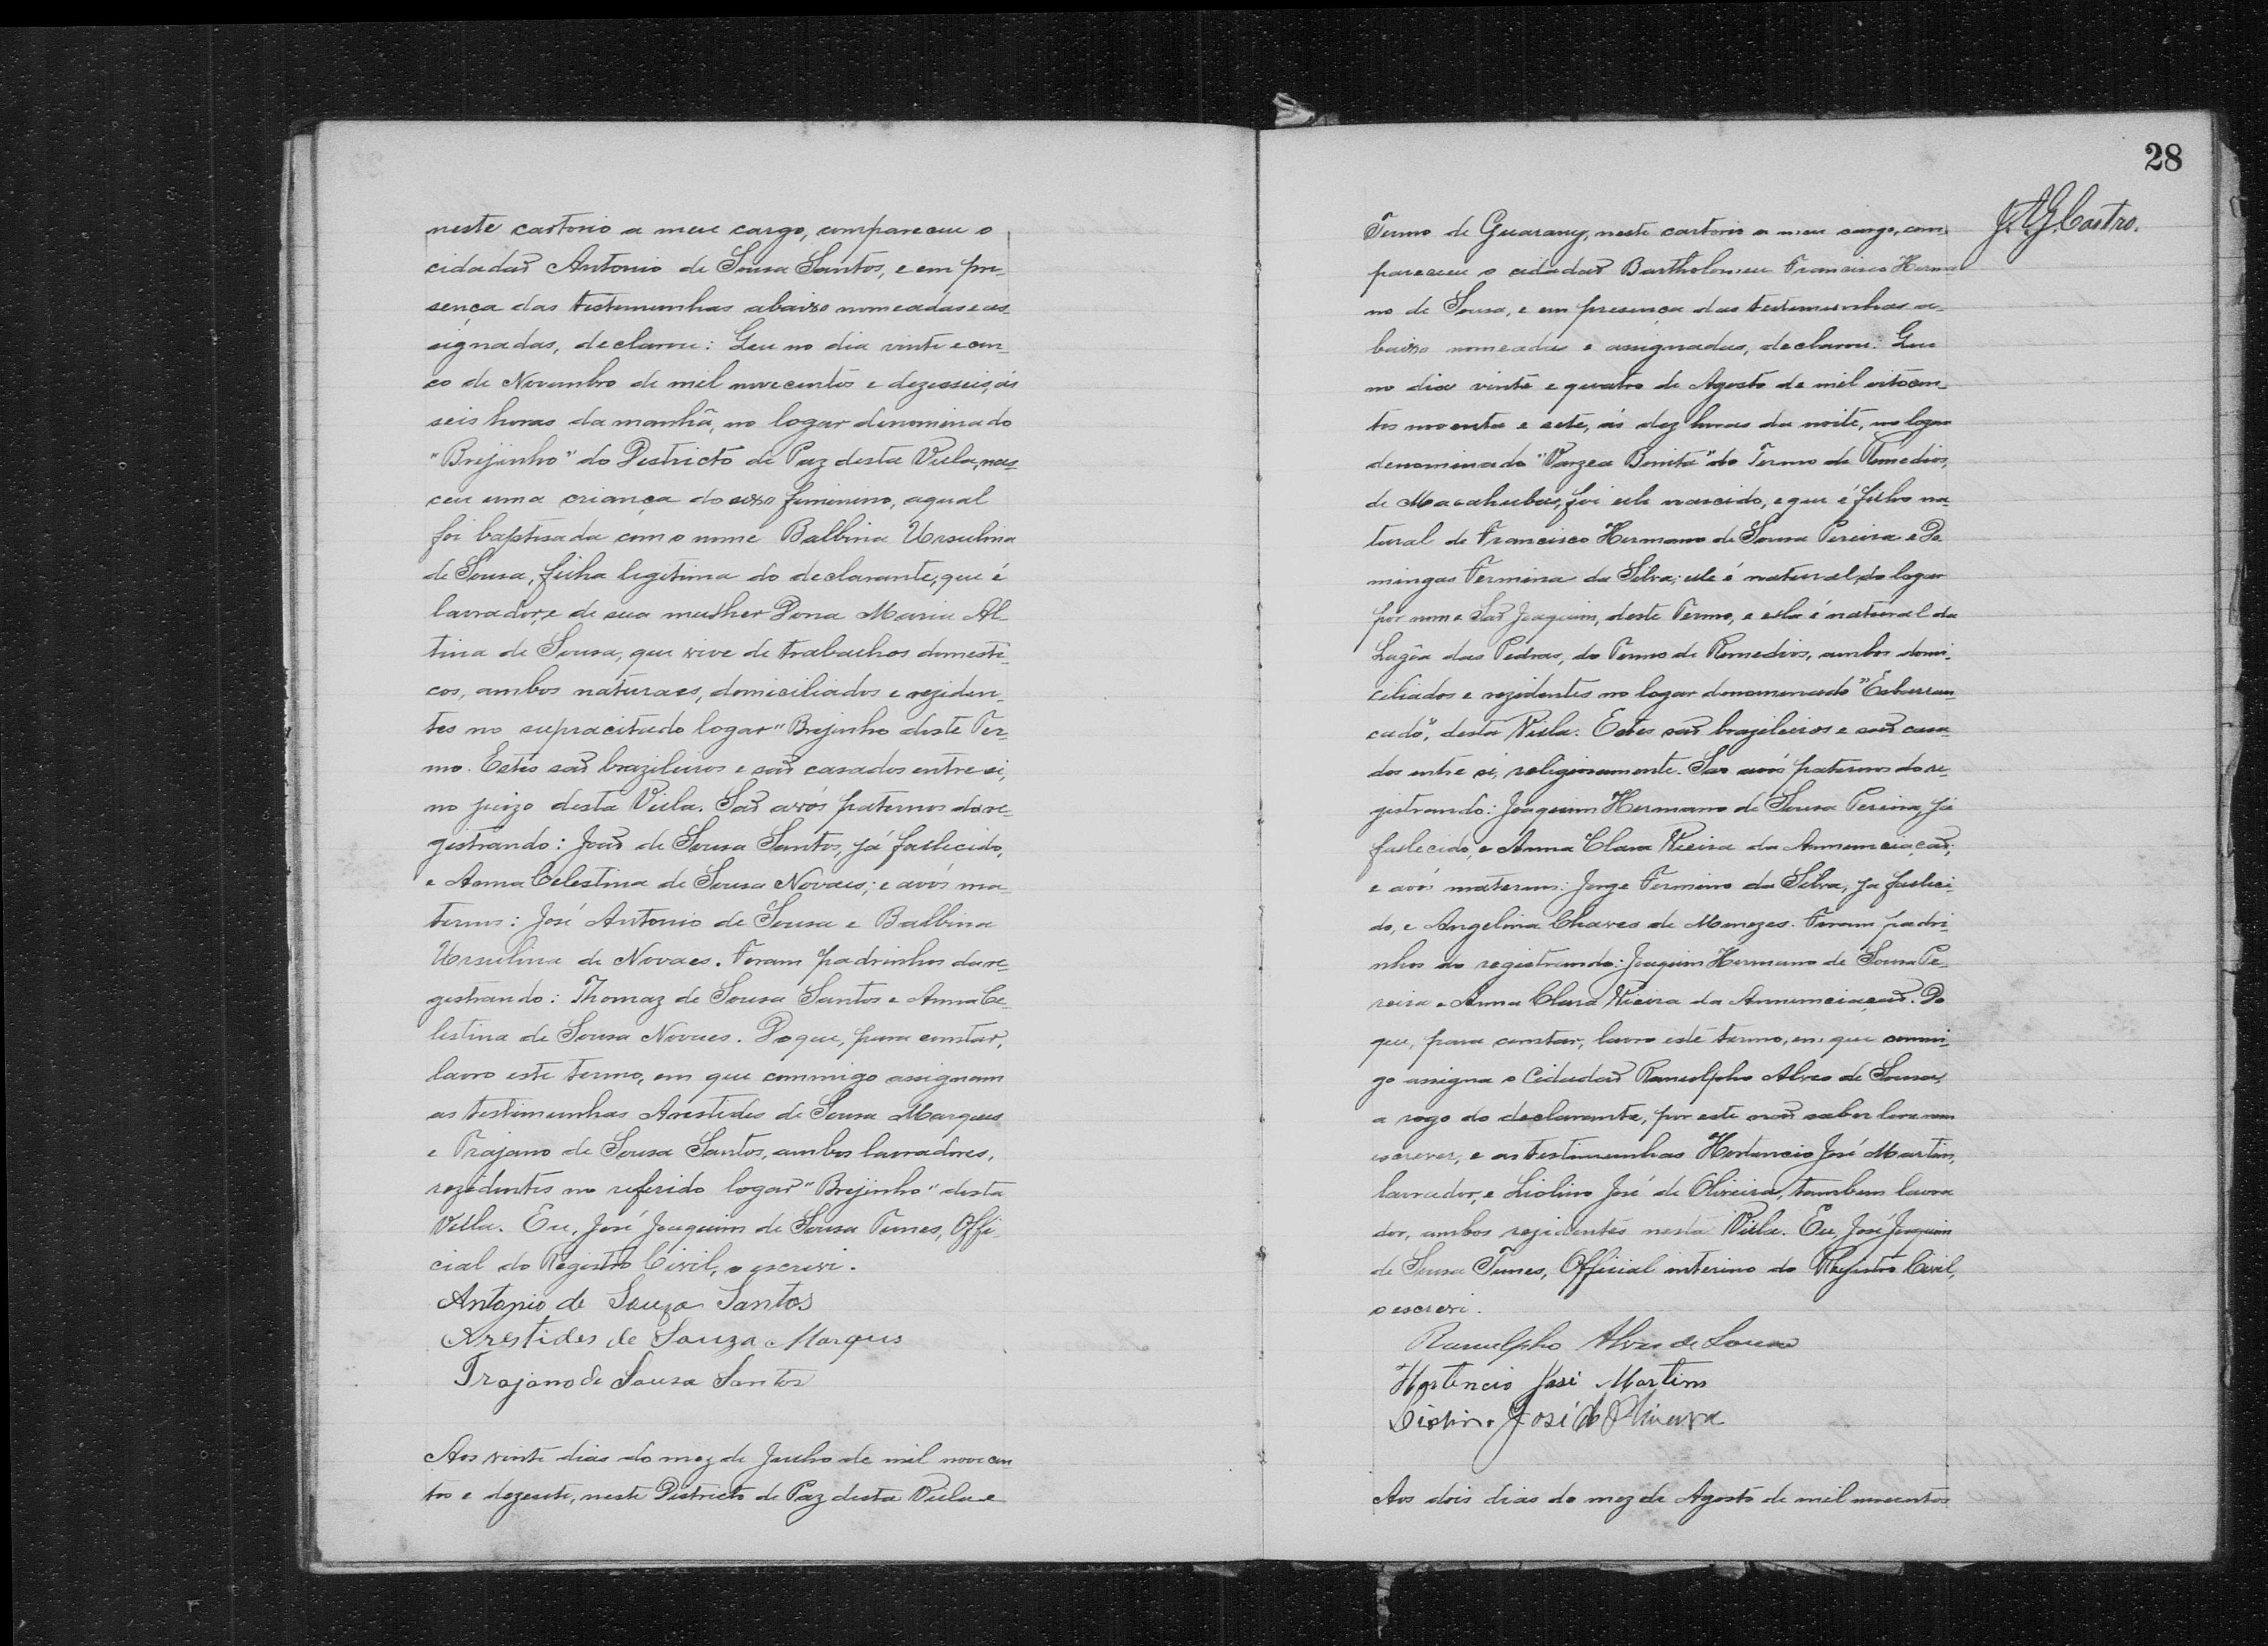 neste cartorio a meu cargo, compareceu o
cidadão Antonio de Sousa Santos, e em pre-
sença das testemunhas abaixo nomeadas e as-
signadas, declarou: Que no dia vinte e cin-
co de Novembro de mil novecentos e dezesseis, ás
seis horas da manhã, no logar denominado
"Brejinho" do Districto de Paz desta Villa, nas-
ceu uma criança do sexo feminino, a qual
foi baptisada com o nome Balbina Ursulina
de Sousa, filha legitima do declarante, que é
lavrador, e de sua mulher Dona Maria Al-
tina de Sousa, que vive de trabalhos domesti-
cos, ambos naturaes, domiciliados e reziden-
tes no supracitado logar "Brejinho deste Ter-
mo. Estes são brazileiros e são casados entre si,
no juizo desta Villa. São avós paternos do re-
gistrando: João de Sousa Santos, já fallecido,
e Anna Celestina de Sousa Novaes; e avós ma-
ternos: José Antonio de Sousa e Balbina
Ursulina de Novaes. Foram padrinhos da re-
gistrando: Thomaz de Sousa Santos e Anna Ce-
lestina de Sousa Novaes. Do que, para constar,
lavro este termo, em que commigo assignam
as testimunhas Arestides de Sousa Marques
e Trajano de Sousa Santos, ambos lavradores,
rezidentes no referido logar "Brejinho" desta
Villa. Eu, José Joaquim de Sousa Tunes, Offi-
cial do Registro Civil, o escrevi.
Antonio de Souza Santos
Arestides de Souza Marques
Trajano de Sousa Santos
Aos vinte dias do mez de Julho de mil novecen-
tos e dezesete, neste Districto de Paz desta Villa e
28
J. A. G. Castro.
Termo de Guarany, neste cartorio a meu cargo, com-
pareceu o cidadão Bartholomeu Francisco Herma-
no de Sousa, e em presença das testemunhas a-
baixo nomeadas e assignadas, declarou: Que
no dia vinte e quatro de Agosto de mil oitocen-
tos noventa e sete, ás dez horas da noite, no logar
denominado "Varzea Bonita" do Termo de Remedios,
de Macahubas, foi elle nascido, e que é filho na-
tural de Francisco Hermano de Sousa Pereira e Do-
mingas Fermina da Silva; elle é natural do logar
por nome São Joaquim, deste Termo, e ella é natural da
Lagôa das Pedras, do Termo de Remedios, ambos domi-
ciliados e rezidentes no logar denominado "Esbarran-
cado", desta Villa. Estes são brazileiros e são casa-
dos entre si, religiosamente. São avós paternos do re-
gistrando: Joaquim Hermano de Sousa Pereira, já
fallecido, e Anna Clara Vieira da Annunciação;
e avós maternos: Jorge Fermino da Silva, já falleci-
do, e Angelina Chaves de Menezes. Foram padri-
nhos do registrando: Joaquim Hermano de Sousa Pe-
reira e Anna Clara Vieira da Annunciação. Do
que, para constar, lavro este termo, em que commi-
go assigna o Cidadão Ranulpho Alves de Sousa,
a rogo do declarante, por este não saber ler e nem
escrever, e as testimunhas Hortencio José Martins,
lavrador, e Liolino José de Oliveira, tambem lavra
dor, ambos rezidentes nesta Villa. Eu, José Joaquim
de Sousa Tunes, Official interino do Registro Civil,
o escrevi.
Ranulpho Alves de Sousa
Hortencio José Martins
Liolino José de Oliveira
Aos dois dias do mez de Agosto de mil novecentos